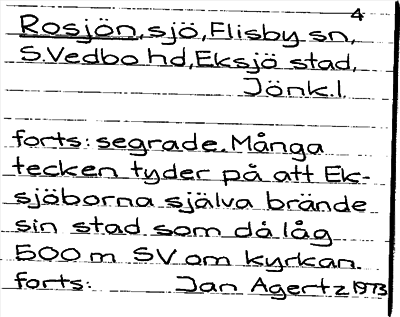 4
Rosjön, sjö, Flisby sn,
S. Vedbo hd, Eksjö stad,
Jönk. l.
forts: segrade. Många
tecken tyder på att Ek-
sjöborna själva brände
sin stad som då låg
500 m SV om kyrkan.
forts: Jan Agertz 1973